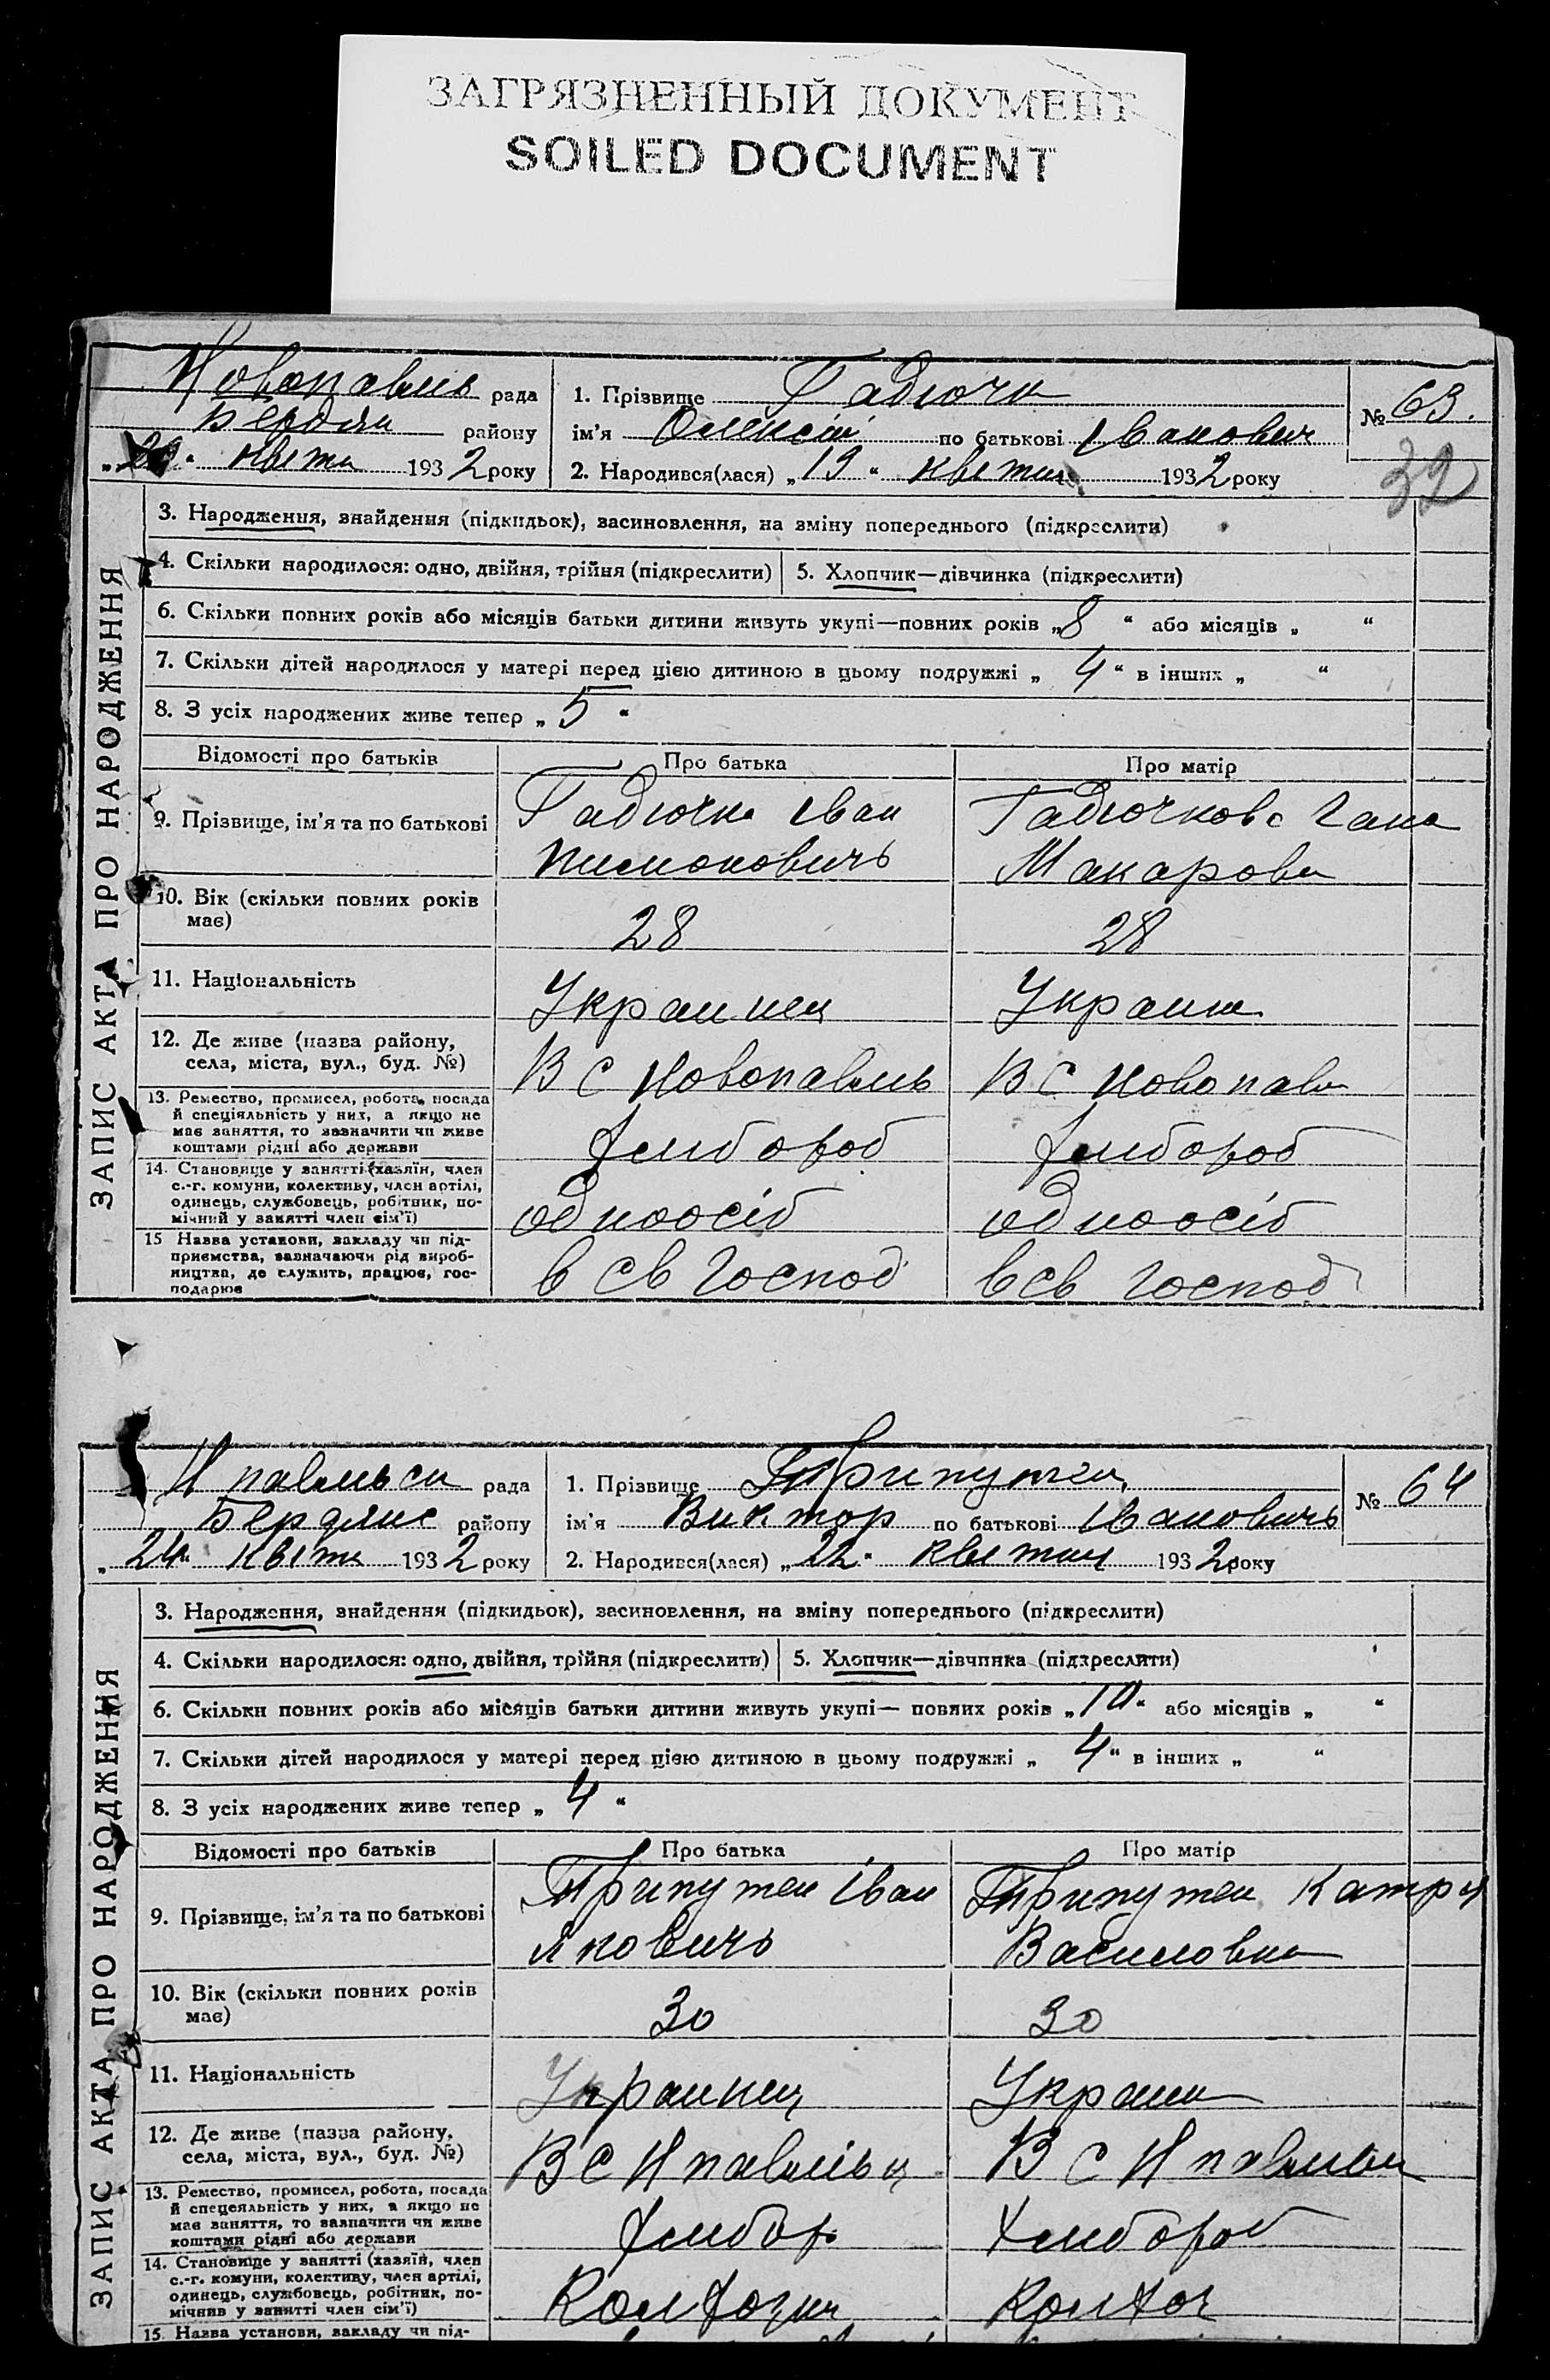 ЗАГРЯЗНЕННЫЙ ДОКУМЕНТ
SOILED DOCUMENT
ЗАПИС АКТА ПРО НАРОДЖЕННЯ
Новопавлів рада
Бердян району
квітн 1932 року
1. Прізвище Гадючк
ім'я Олексій по батькові Іванович
2. Народився(лася) „19“ квітня 1932 року
№ 63.
32
3. Народження, знайдення (підкидьок), засиновлення, на зміну попереднього (підкреслити)
4. Скільки народилося: одно, двійня, трійня (підкреслити) 5. Хлопчик—дівчинка (підкреслити)
6. Скільки повних років або місяців батьки дитини живуть укупі—повних років „8“ або місяців „ “
7. Скільки дітей народилося у матері перед цією дитиною в цьому подружжі „4“ в інших „ “
8. З усіх народжених живе тепер „5“
Відомості про батьків Про батька Про матір
9. Прізвище, ім'я та по батькові
Гадючка Іван
Пимонович
Гадючкова Гана
Макарова
10. Вік (скільки повних років має)
28
28
11. Національність
Украинец
Украин
12. Де живе (назва району, села, міста, вул., буд. №)
В С Новопавль
В С Новопав
13. Ремество, промисел, робота, посада
й спеціяльність у них, а якщо не
має заняття, то зазначити чи живе
коштами рідні або держави
Хлибороб
Хлибороб
14. Становище у занятті (хазяїн, член
с.-г. комуни, колективу, член артілі,
одинець, службовець, робітник, по-
мічний у занятті член сім'ї)
одноосіб
одноосіб
15 Назва установи, закладу чи під-
приємства, зазначаючи рід вироб-
ництва, де служить, працює, гос-
подарює
в св Господ
в св Господ
ЗАПИС АКТА ПРО НАРОДЖЕННЯ
Н павльск рада
Бердянс району
„24“ квітн 1932 року
1. Прізвище Припутен
ім'я Виктор по батькові Іванович
2. Народився(лася) „22“ квітня 1932 року
№ 64
3. Народження, знайдення (підкидьок), засиновлення, на зміну попереднього (підкреслити)
4. Скільки народилося: одно, двійня, трійня (підкреслити) 5. Хлопчик—дівчинка (підкреслити)
6. Скільки повних років або місяців батьки дитини живуть укупі— повних років „10“ або місяців „ “
7. Скільки дітей народилося у матері перед цією дитиною в цьому подружжі „4“ в інших „ “
8. З усіх народжених живе тепер „4“
Відомості про батьків Про батька Про матір
9. Прізвище, ім'я та по батькові
Припутен Іван
Якович
Припутен Катря
Василовна
10. Вік (скільки повних років має)
30
30
11. Національність
Украинец
Украин
12. Де живе (назва району, села, міста, вул., буд. №)
В С Н павлівц
В С Н павливк
13. Ремество, промисел, робота, посада
й спецеяльність у них, а якщо не
має заняття, то зазначити чи живе
коштами рідні або держави
Хлибор
Хлибороб
14. Становище у занятті (хазяїн, член
с.-г. комуни, колективу, член артілі,
одинець, службовець, робітник, по-
мічнив у занятті член сім'ї)
Колхозн
Колхоз
15. Назва установи, закладу чи під-